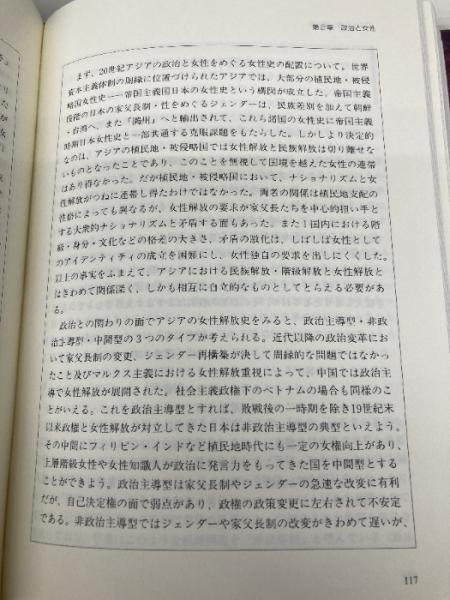 第2章　政治と女性
まず、20世紀アジアの政治と女性をめぐる女性史の配置について。世界
資本主義体制の周縁に位置づけられたアジアでは、大部分の植民地・被侵
略国女性史――帝国主義国日本の女性史という構図が成立した。帝国主義
段階の日本の家父長制・性をめぐるジェンダーは、民族差別を加えて朝鮮
・台湾へ、また「満州」へと輸出されて、これら諸国の女性史に帝国主義
時期日本女性史と一部共通する克服課題をもたらした。しかしより決定的
なのは、アジアの植民地・被侵略国では女性解放と民族解放は切り離せな
いものとなったことであり、このことを無視して国境を越えた女性の連帯
はあり得なかった。だが植民地・被侵略国において、ナショナリズムと女
性解放がつねに連帯し得たわけではなかった。両者の関係は植民地支配の
性格によっても異なるが、女性解放の要求が家父長たちを中心的担い手と
する大衆的ナショナリズムと矛盾する面もあった。また1国内における階
級・身分・文化などの格差の大きさ、矛盾の激化は、しばしば女性として
のアイデンティティの成立を困難にし、女性独自の要求を出しにくくした。
以上の事実をふまえて、アジアにおける民族解放・階級解放と女性解放と
はきわめて関係深く、しかも相互に自立的なものとしてとらえる必要があ
る。
政治との関わりの面でアジアの女性解放史をみると、政治主導型・非政
治主導型・中間型の3つのタイプが考えられる。近代以降の政治変革にお
いて家父長制の変更、ジェンダー再構築が決して周縁的な問題ではなかっ
たこと及びマルクス主義における女性解放重視によって、中国では政治主
導で女性解放が展開された。社会主義政権下のベトナムの場合も同様のこ
とがいえる。これを政治主導型とすれば、敗戦後の一時期を除き19世紀末
以来政権と女性解放が対立してきた日本は非政治主導型の典型といえよう。
その中間にフィリピン・インドなど植民地時代にも一定の女権向上があり、
上層階級女性や女性知識人が政治に発言力をもってきた国を中間型とする
ことができよう。政治主導型は家父長制やジェンダーの急速な改変に有利
だが、自己決定権の面で弱点があり、政権の政策変更に左右されて不安定
である。非政治主導型ではジェンダーや家父長制の改変がきわめて遅いが、
117